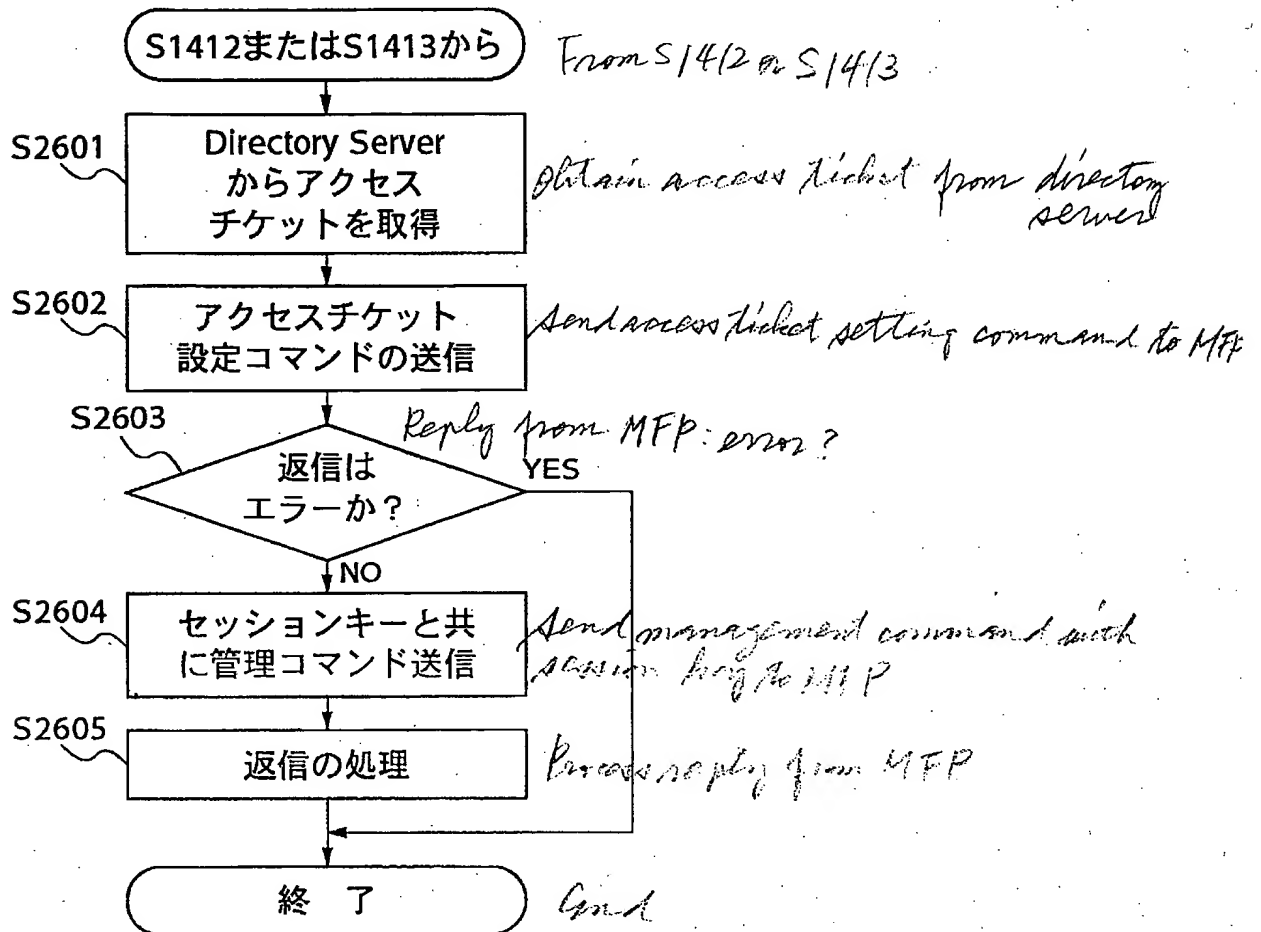 S1412またはS1413から
From S1412 or S1413
S2601
Directory Server
からアクセス
チケットを取得
Obtain access ticket from directory
server
S2602
アクセスチケット
設定コマンドの送信
Send access ticket setting command to MFP
S2603
Reply from MFP: error?
返信は
エラーか？
YES
NO
S2604
セッションキーと共
に管理コマンド送信
Send management command with
session key to MFP
S2605
返信の処理
Process reply from MFP
終 了
End